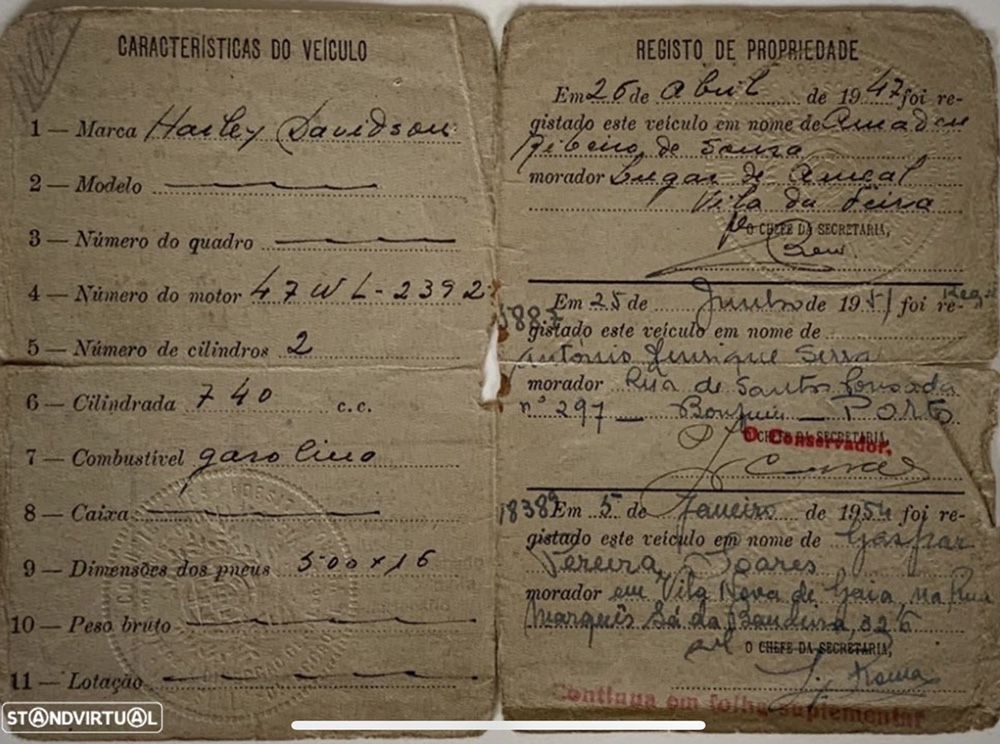 CARACTERÍSTICAS DO VEÍCULO
1 — Marca Harley Davidson
2 — Modelo
3 — Número do quadro
4 — Número do motor 47WL-2392
5 — Número de cilindros 2
6 — Cilindrada 740 c.c.
7 — Combustível gasolina
8 — Caixa
9 — Dimensões dos pneus 500x16
10 — Peso bruto
11 — Lotação
REGISTO DE PROPRIEDADE
Em 26 de Abril de 1947 foi re-
gistado este veículo em nome de
Ribeiro de Sousa
morador Lugar de
Vila da Feira
O CHEFE DA SECRETARIA,
Em 25 de Junho de 1951 foi re-
gistado este veículo em nome de
António Henrique Serra
morador Rua de Santos Pousada
nº 297 — Bonfim — Porto
O CHEFE DA SECRETARIA,
O Conservador,
18389 Em 5 de Janeiro de 1954 foi re-
gistado este veículo em nome de Gaspar
Pereira Soares
morador em Vila Nova de Gaia, na Rua
Marquês Sá da Bandeira, 326
O CHEFE DA SECRETARIA,
Continua em folha suplementar
STANDVIRTUAL